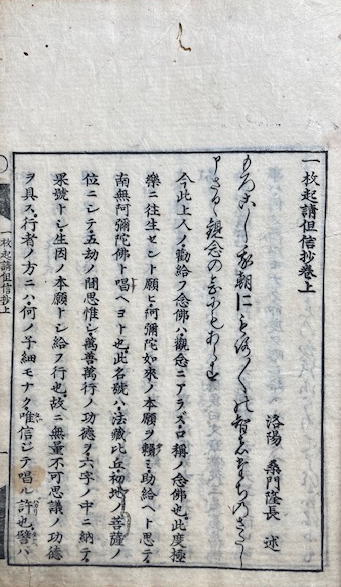 一枚起請但信抄巻上
洛陽　桑門隆長　述
もろこし我朝にもろ〳〵の智者たちのさたし
申さるゝ観念の念にもあらす
今此上人ノ勸給フ念佛ハ觀念ニアラズ口稱ノ念佛也此度極
樂ニ往生セント願ヒ阿彌陀如來ノ本願ヲ賴ミ助給ヘト思テ
南無阿彌陀佛ト唱ヘヨト也此名號ハ法藏比丘初地ノ菩薩ノ
位ニシテ五劫ノ間思惟シ萬善萬行ノ功德ヲ六字ノ中ニ納テ
果號トシ生因ノ本願トシ給フ行也故ニ無量不可思議ノ功德
ヲ具ス行者ノ方ニハ何ノ子細モナク唯信シテ唱ル許也譬ハ
一枚起請但信抄上
一